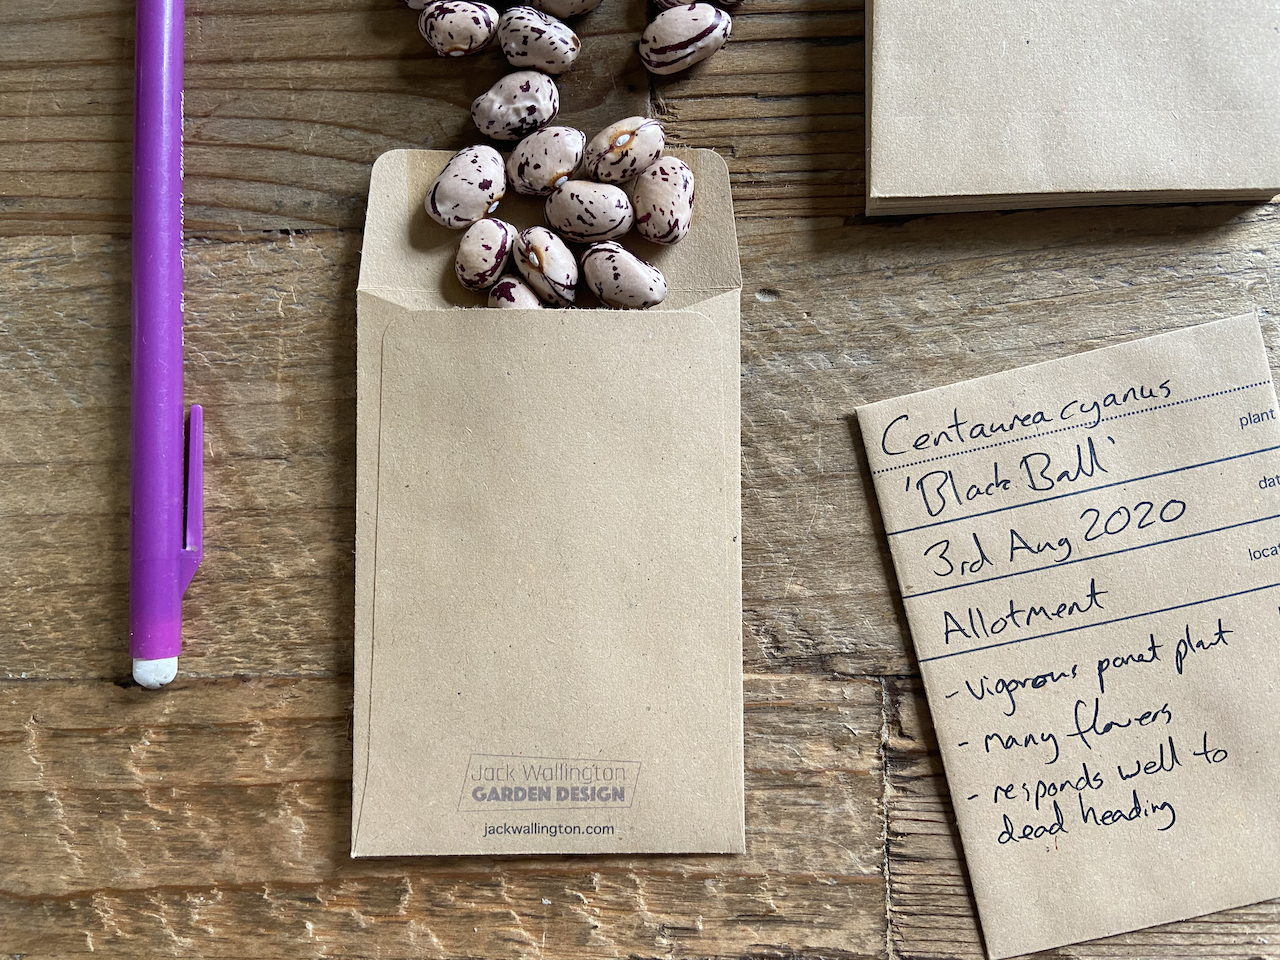 Jack Wallington
GARDEN DESIGN
jackwallington.com
Centaurea cyanus
plant
'Black Ball'
dat
3rd Aug 2020
locat
Allotment
- Vigorous parent plant
- many flowers
- responds well to
dead heading